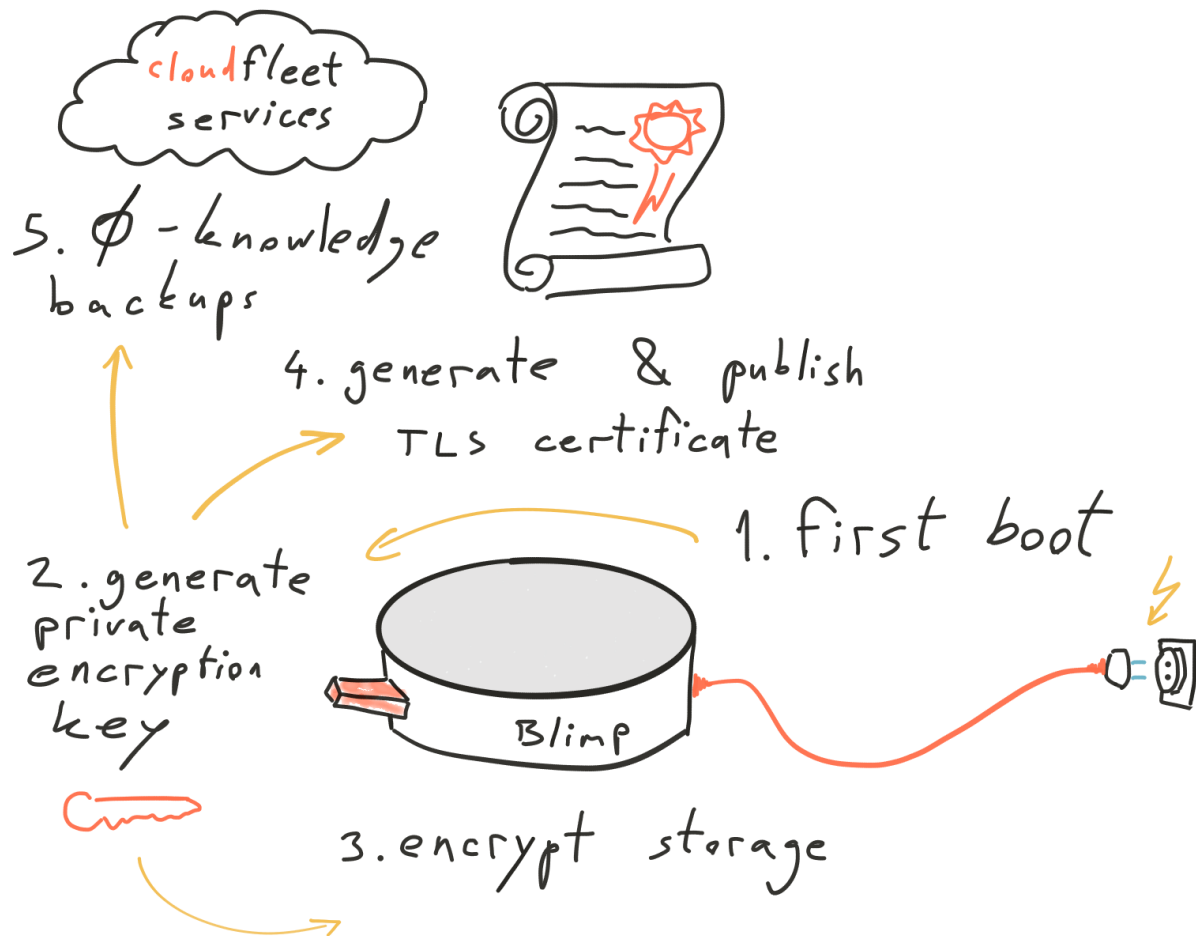 cloudfleet
services
5. Ø-knowledge
backups
4. generate & publish
TLS certificate
1. first boot
2. generate
private
encryption
key
Blimp
3. encrypt storage